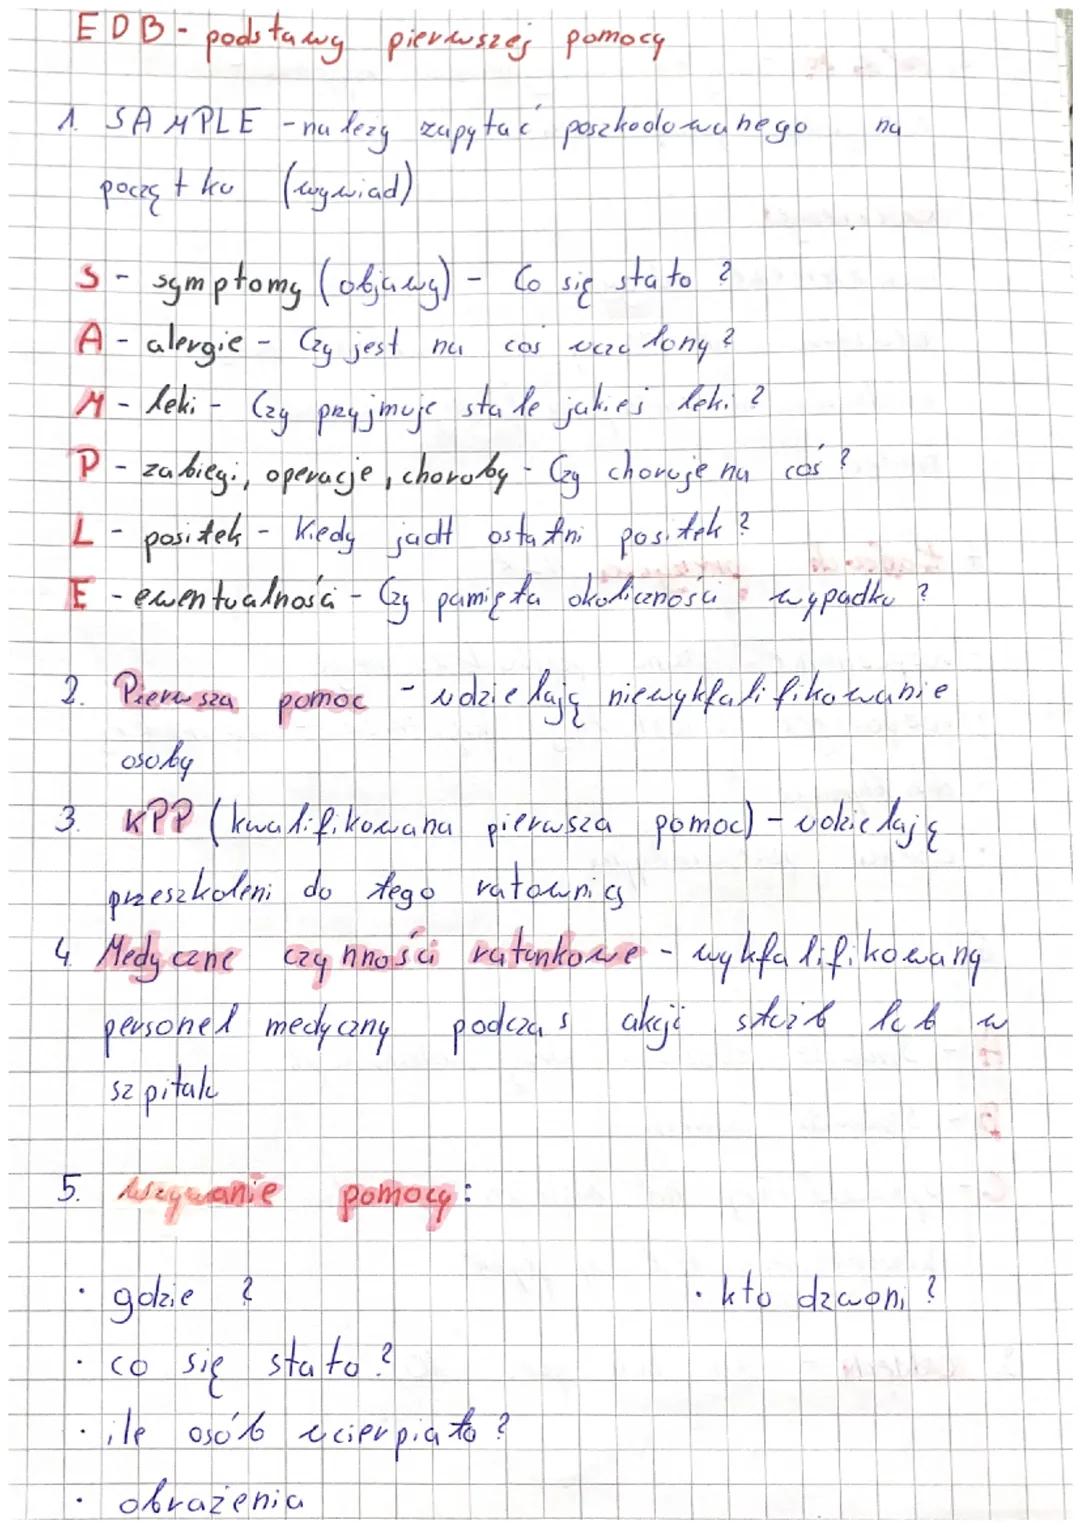 EDB - podstawy pierwszej pomocy
1. SAMPLE - należy zapytać poszkodowanego na
początku (wywiad)
S - symptomy (objawy) - Co się stało?
A - alergie - Czy jest na coś uczulony?
M - leki - Czy przyjmuje stale jakieś leki?
P - zabiegi, operacje, choroby - Czy choruje na coś?
L - posiłek - Kiedy jadł ostatni posiłek?
E - ewentualności - Czy pamięta okoliczności wypadku?
2. Pierwsza pomoc - udzielają niewykfalifikowanie
osoby
3. KPP (kwalifikowana pierwsza pomoc) - udzielają
przeszkoleni do tego ratownicy
4. Medyczne czynności ratunkowe - wykfalifikowany
personel medyczny podczas akcji służb lub w
szpitalu
5. Wzywanie pomocy:
· gdzie? · kto dzwoni?
· co się stało?
· ile osób ucierpiało?
· obrażenia